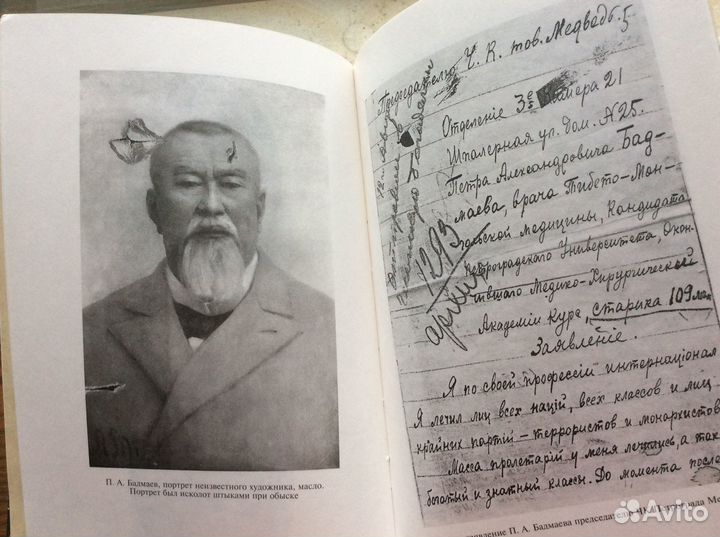 П. А. Бадмаев, портрет неизвестного художника, масло.
Портрет был исколот штыками при обыске
Председателю Ч. К. тов. Медведь.
5
Отделенiе 3е камера 21
Шпалерная ул. дом. №25.
Петра Александровича Бад-
маева, врача Тибето-Мон-
гольской медицины, Кандидата
Петроградского Университета, Окон-
чившаго Медико-Хирургическiй
Академiи Курс, старика 109 лет
Заявленiе.
Я по своей профессiи интернационал
Я лечил лиц всех нацiй, всех классов и лиц
крайних партiй – террористов и монархистов
Масса пролетарiй у меня лечились, а так
богатый и знатный классы. До момента после
1293
архив
заявление П. А. Бадмаева председателю ЧК Петрограда Ме
Avito